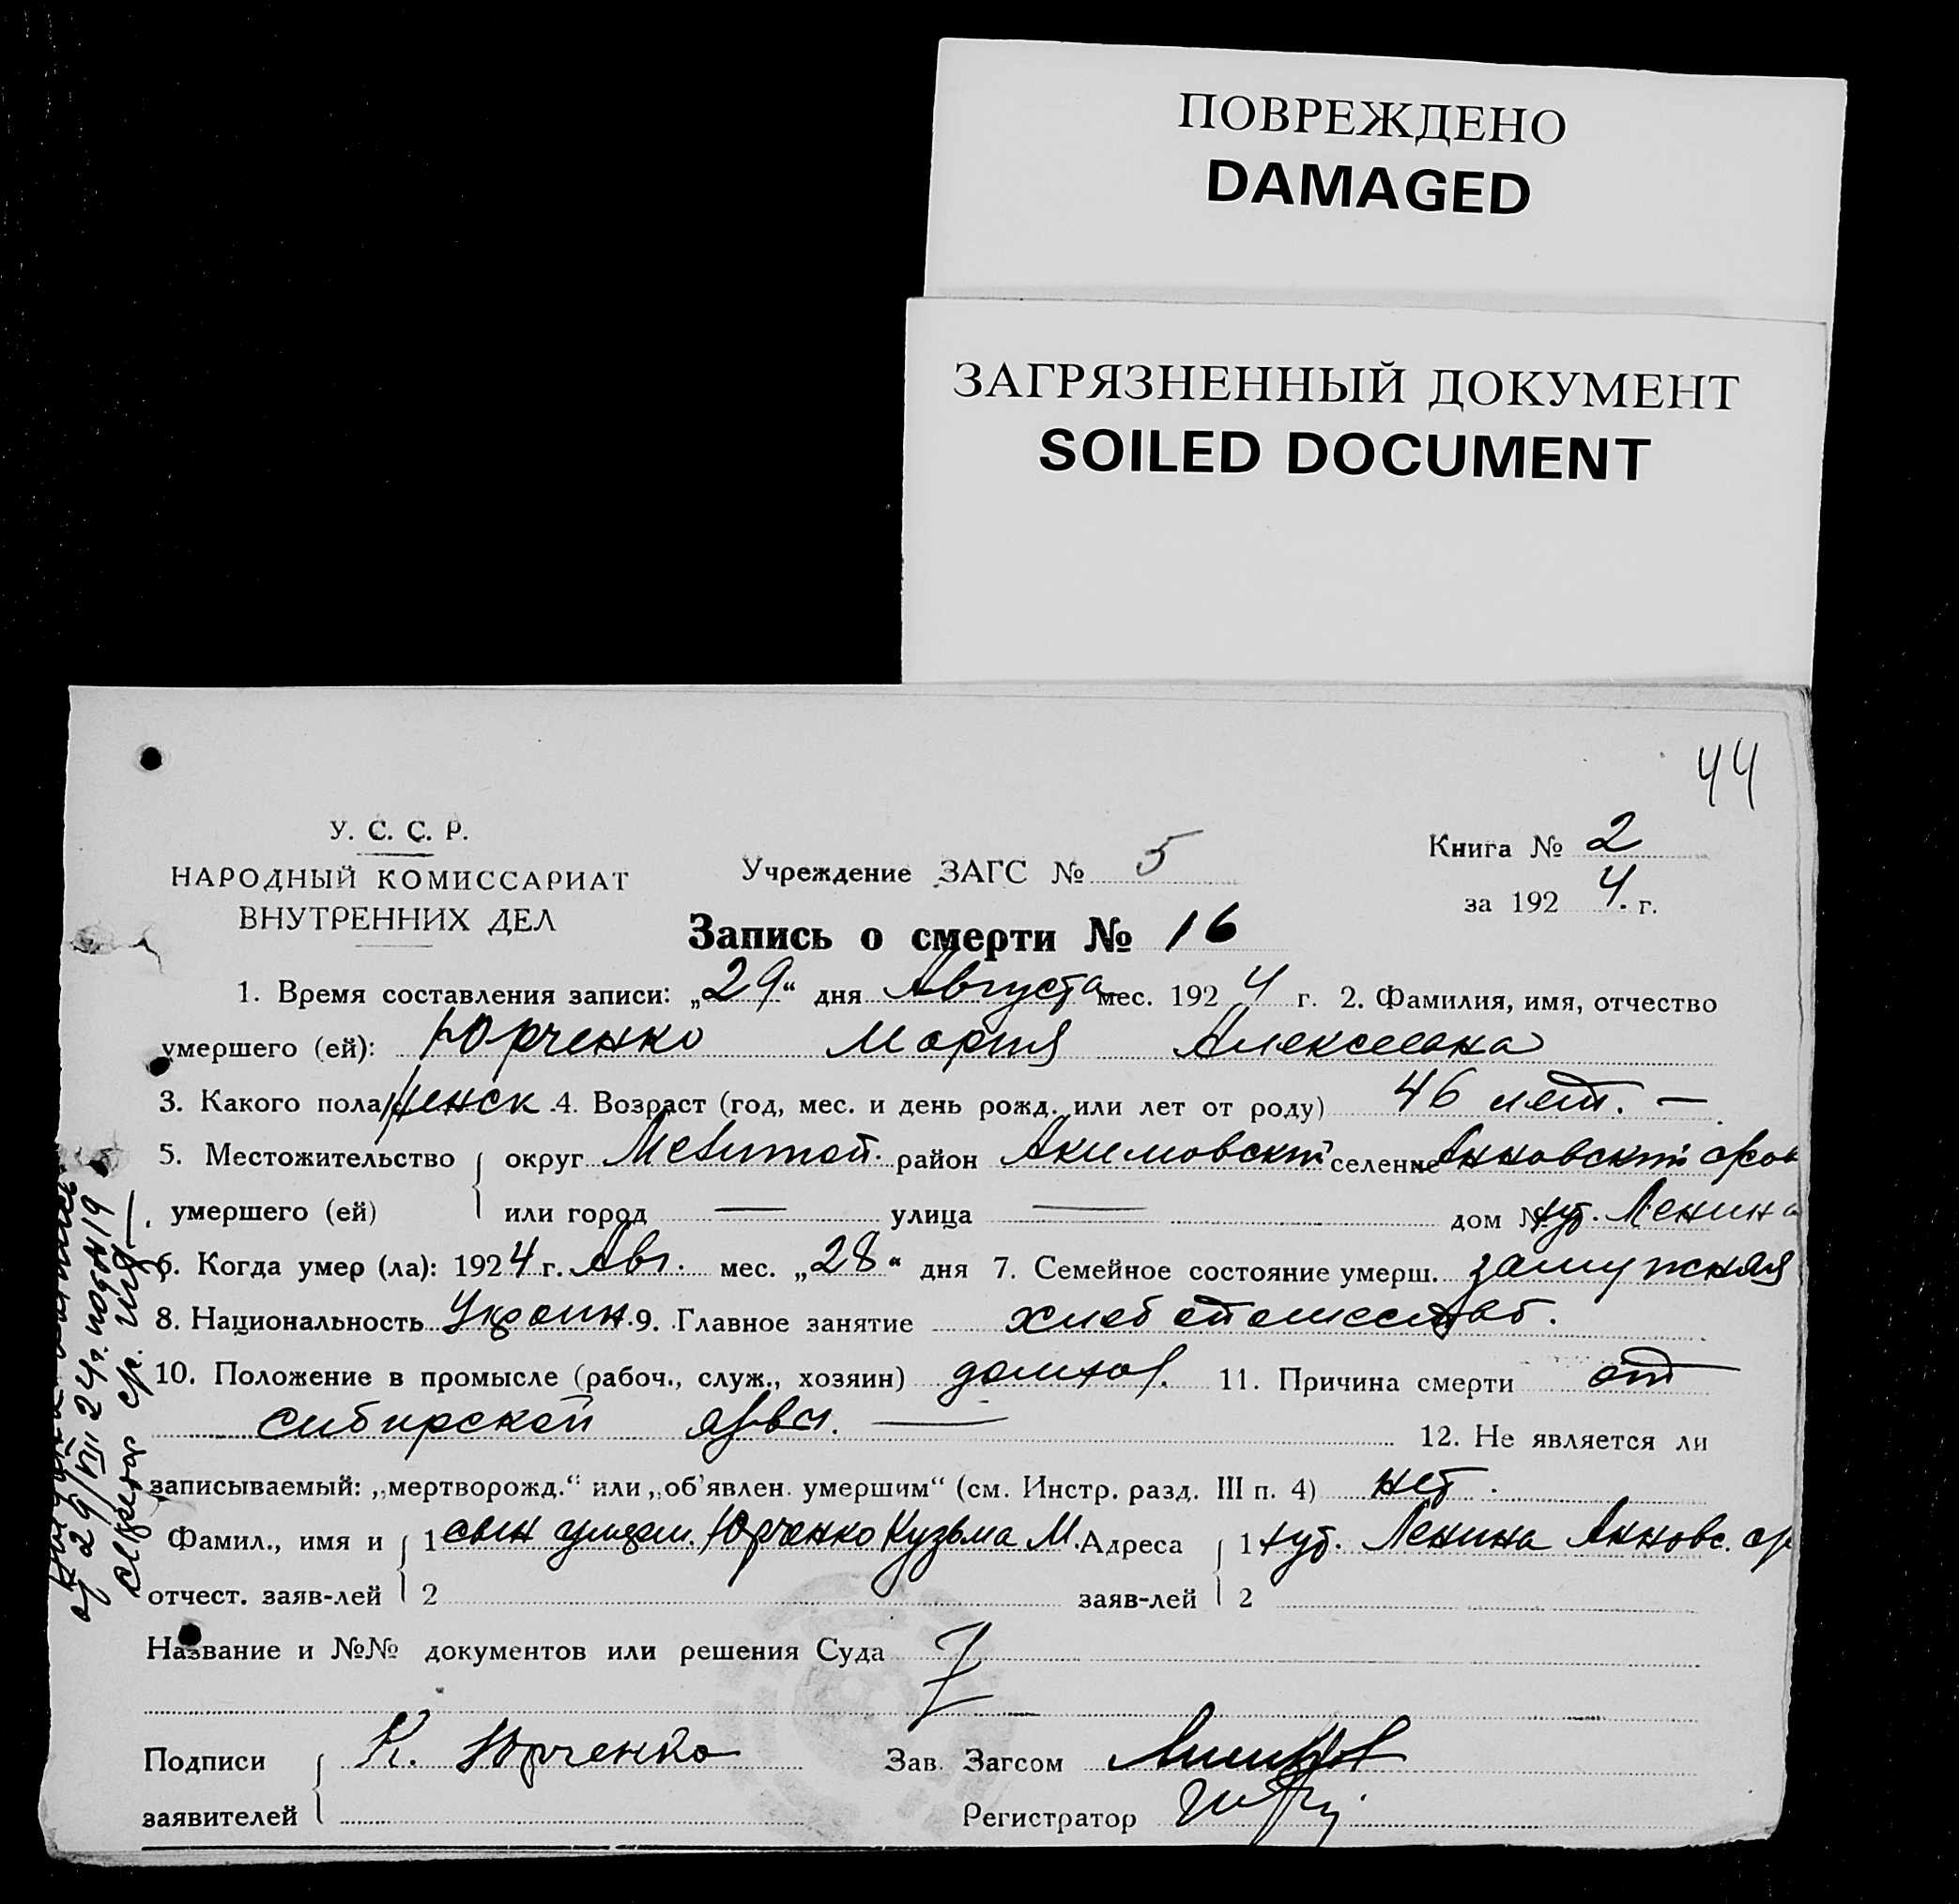 ПОВРЕЖДЕНО
DAMAGED
ЗАГРЯЗНЕННЫЙ ДОКУМЕНТ
SOILED DOCUMENT
44
У. С. С. Р.
НАРОДНЫЙ КОМИССАРИАТ
ВНУТРЕННИХ ДЕЛ
Учреждение ЗАГС № 5
Книга № 2
за 1924. г.
Запись о смерти № 16
1. Время составления записи: „29“ дня Августа мес. 1924 г. 2. Фамилия, имя, отчество
умершего (ей): Юрченко Мария Алексеевна
3. Какого пола женск. 4. Возраст (год, мес. и день рожд. или лет от роду) 46 лет. —
5. Местожительство округ Мелитоп. район Акимовский селение Анновский
умершего (ей) или город — улица — дом № хут. Ленина
6. Когда умер (ла): 1924 г. Авг. мес. „28“ дня 7. Семейное состояние умерш. замужняя
8. Национальность Украин. 9. Главное занятие
10. Положение в промысле (рабоч., служ., хозяин) домхоз. 11. Причина смерти от
сибирской язвы. — 12. Не является ли
записываемый: „мертворожд.“ или „об’явлен. умершим“ (см. Инстр. разд. III п. 4) нет.
Фамил., имя и 1 сын умерш. Юрченко Кузьма М. Адреса 1 хут. Ленина Анновс.
отчест. заяв-лей 2 заяв-лей 2
Название и №№ документов или решения Суда
Подписи К. Юрченко Зав. Загсом
заявителей Регистратор
29/VIII 24 г. под № 19